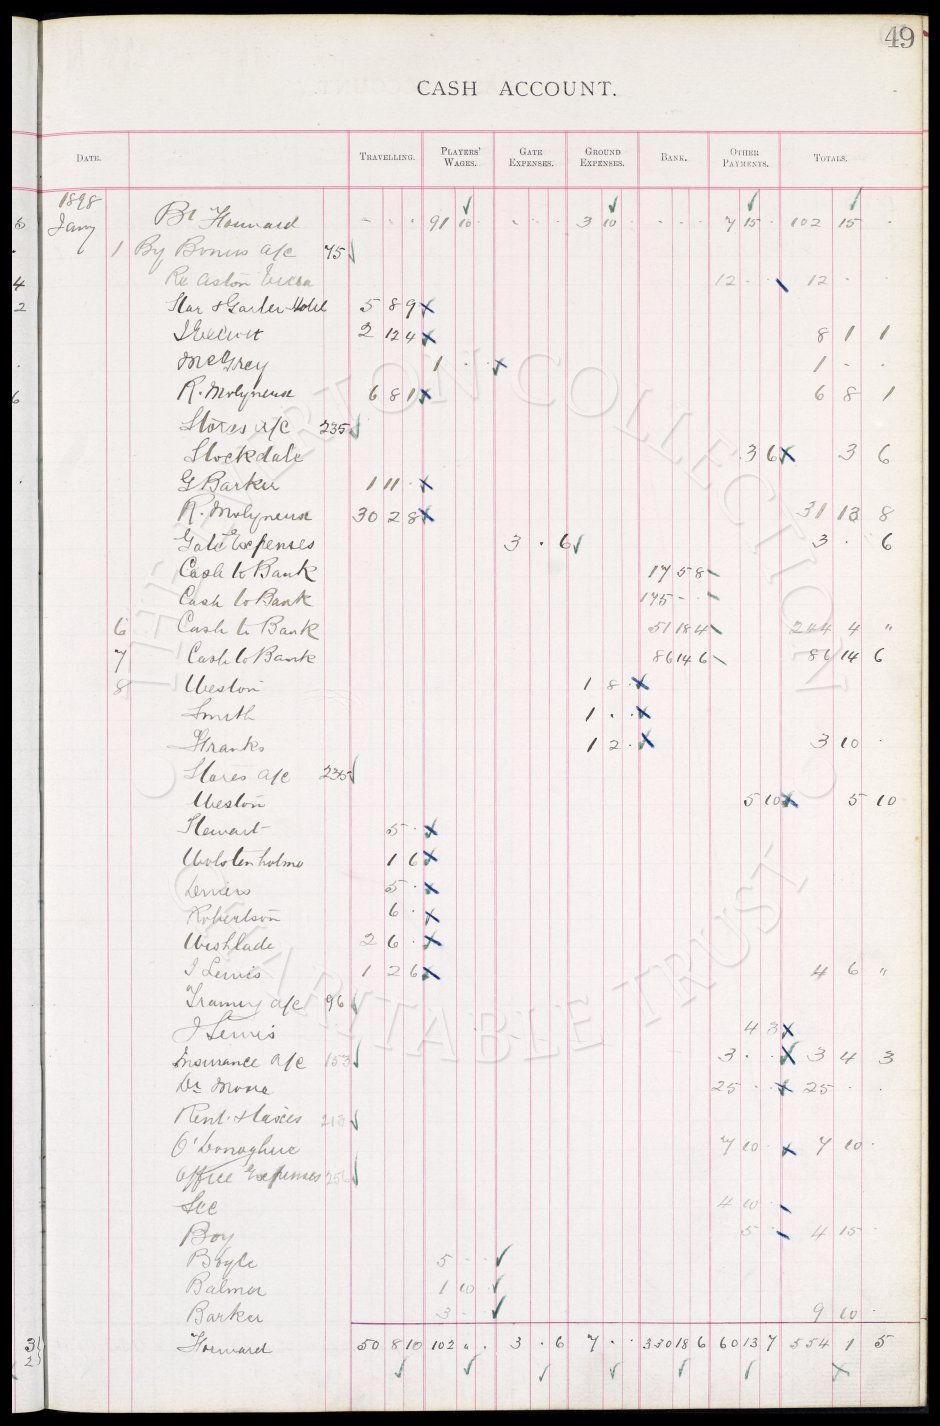 49
CASH ACCOUNT.
DATE. TRAVELLING. PLAYERS' WAGES. GATE EXPENSES. GROUND EXPENSES. BANK. OTHER PAYMENTS. TOTALS.
1898
Jany Bt Forward - - - 91 10 . - - - 3 10 . - - - 7 15 . 102 15 .
1 By Bonus a/c 75
Re Aston Villa 12 - - 12 - -
Star & Garter Hotel 5 8 9
J Elliott 2 12 4 8 1 1
McGrey 1 . . 1 - -
R. Molyneux 6 8 1 6 8 1
Stores a/c 235
Stockdale 3 6 3 6
G Barker 1 11 .
R. Molyneux 30 2 8 31 13 8
Gate Expenses 3 . 6 3 . 6
Cash to Bank 17 5 8
Cash to Bank 175 - -
6 Cash to Bank 51 18 4 244 4 "
7 Cash to Bank 86 14 6 86 14 6
8 Weston 1 8 .
Smith 1 . .
Franks 1 2 . 3 10 .
Stores a/c 235
Weston 5 10 5 10
Stewart 5 .
Wolstenholme 1 6
5 .
Robertson 6 .
2 6 .
J Lewis 1 2 6 4 6 "
Training a/c 96
J Lewis 4 3
Insurance a/c 153 3 . . 3 4 3
Dr 25 . . 25 . .
Rent & taxes
O'Donoghue 7 10 . 7 10 .
Office Expenses 256
Sec 4 10 .
Boy 5 . 4 15 .
Boyle 5 - -
Balmer 1 10 .
Barker 3 - - 9 10 .
Forward 50 8 10 102 " . 3 . 6 7 . . 330 18 6 60 13 7 554 1 5
THE EVERTON COLLECTION
CHARITABLE TRUST